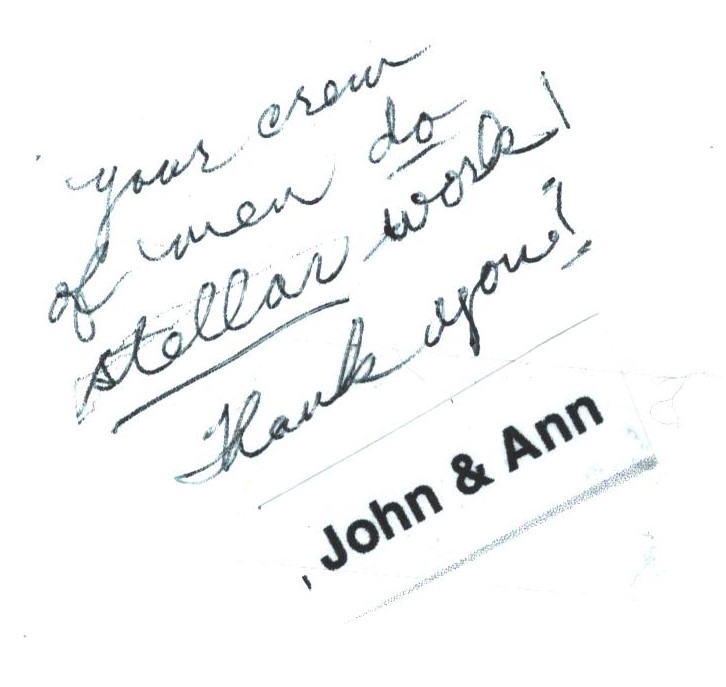 your crew
of men do
stellar work!
Thank you!
, John & Ann